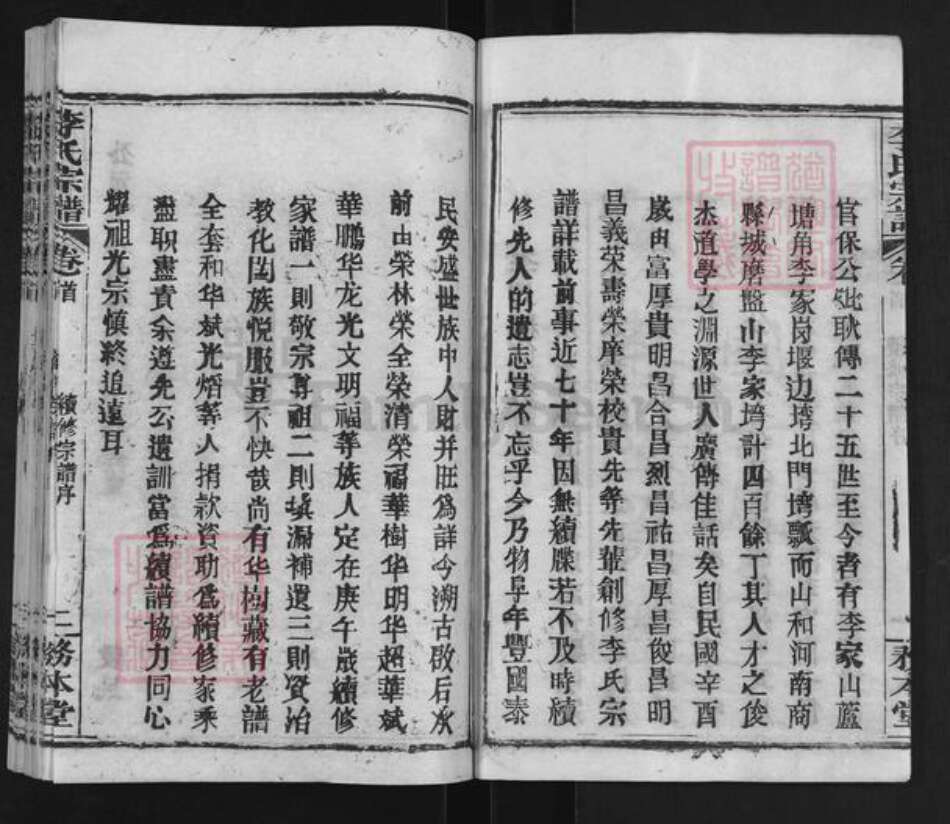 官保公妣耿傳二十五世至今者有李家山藍
塘角李家岗堰边塆北門塆瓢而山和河南商
縣城磨盤山李家塆計四百餘丁其人才之俊
杰道學之淵源世人廣傳佳話矣自民國辛酉
歲由富厚貴明昌合昌烈昌祜昌厚昌俊昌明
昌義荣壽榮庠榮校貴先等先輩創修李氏宗
譜詳載前事近七十年因無續牒若不及時續
修先人的遺志豈不忘乎今乃物阜年豐國泰
民安盛世族中人財并旺為詳今溯古啟后承
前由榮林榮全榮清榮福華樹华明华超華斌
華鵬华龙光文明福等族人定在庚午歲續修
家譜一則敬宗尊祖二則填漏補遺三則資治
教化閤族悦服豈不快哉尚有华樹藏有老譜
全套和华斌光焰等人捐款資助為續修家乘
盡职盡責余遵先公遺訓當為續譜協力同心
耀祖光宗慎終追遠耳
李氏宗譜
卷首
續修宗譜序
二
務本堂